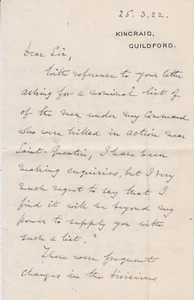 25.3.22.
KINCRAIG,
GUILDFORD.
Dear Sir,
With reference to your letter
asking for a nominal list of
of the men under my Command
who were killed in action near
Saint-Quentin, I have been
making enquiries, but I very
much regret to say that I
find it will be beyond my
power to supply you with
such a list."
There were frequent
changes in the Divisions